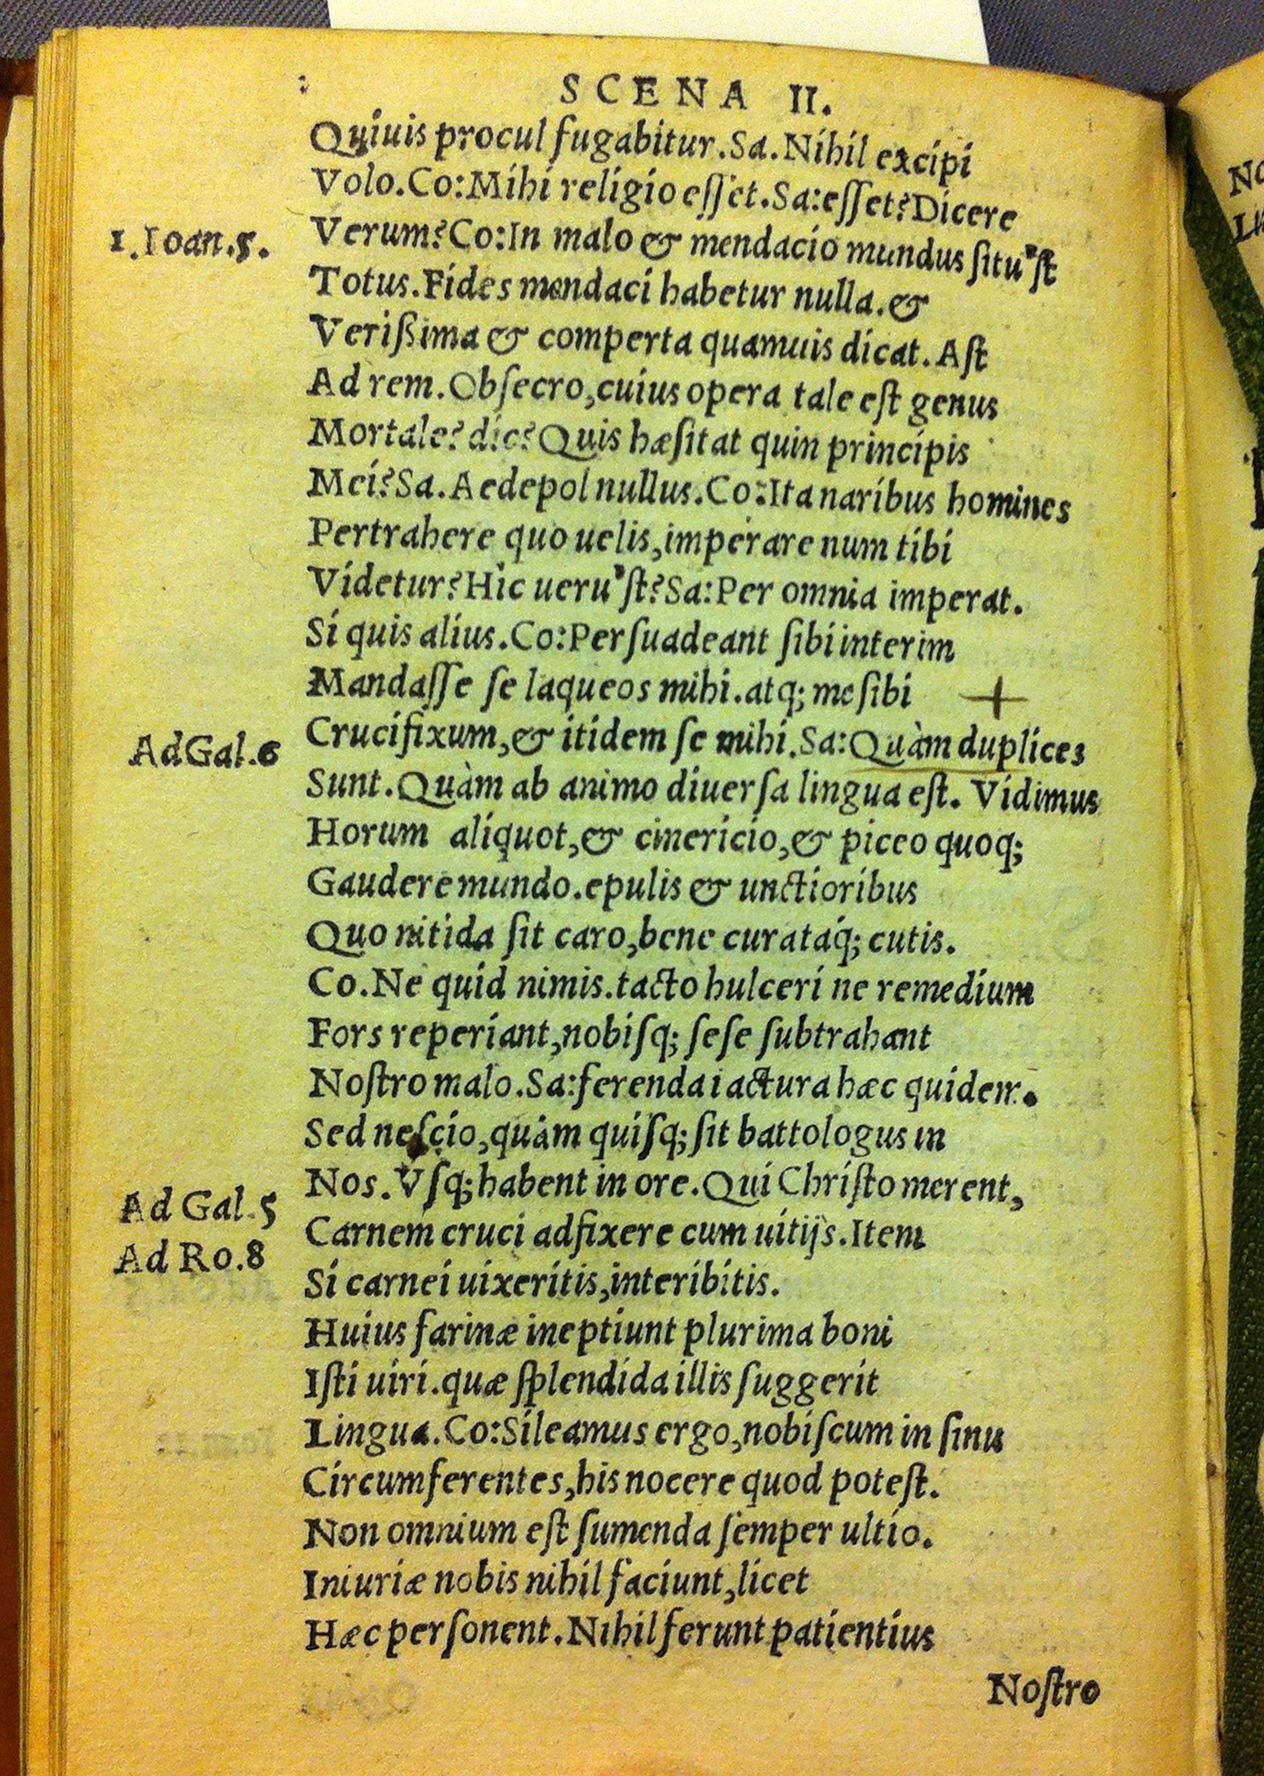 SCENA II.
Quiuis procul fugabitur. Sa. Nihil excipi
Volo. Co: Mihi religio eſſet. Sa: eſſet? Dicere
1. Ioan. 5. Verum? Co: In malo & mendacio mundus ſitu'ſt
Totus. Fides mendaci habetur nulla. &
Verißima & comperta quamuis dicat. Aſt
Ad rem. Obſecro, cuius opera tale eſt genus
Mortale? dic? Quis hæſitat quin principis
Mei? Sa. Aedepol nullus. Co: Ita naribus homines
Pertrahere quo uelis, imperare num tibi
Videtur? Hic ueru'ſt? Sa: Per omnia imperat.
Si quis alius. Co: Perſuadeant ſibi interim
Mandaſſe ſe laqueos mihi. atq; me ſibi +
Ad Gal. 6 Crucifixum, & itidem ſe mihi. Sa: Quàm duplices
Sunt. Quàm ab animo diuerſa lingua eſt. Vidimus
Horum aliquot, & cinericio, & piceo quoq;
Gaudere mundo. epulis & unctioribus
Quo nitida ſit caro, bene curatáq; cutis.
Co. Ne quid nimis. tacto hulceri ne remedium
Fors reperiant, nobiſq; ſeſe ſubtrahant
Noſtro malo. Sa: ferenda iactura hæc quidem.
Sed neſcio, quàm quiſq; ſit battologus in
Nos. Vſq; habent in ore. Qui Chriſto merent,
Ad Gal. 5 Carnem cruci adfixere cum uitijs. Item
Ad Ro. 8 Si carnei uixeritis, interibitis.
Huius farinæ ineptiunt plurima boni
Iſti uiri. quæ ſplendida illis ſuggerit
Lingua. Co: Sileamus ergo, nobiſcum in ſinu
Circumferentes, his nocere quod poteſt.
Non omnium eſt ſumenda ſemper ultio.
Iniuriæ nobis nihil faciunt, licet
Hæc perſonent. Nihil ferunt patientius
Noſtro